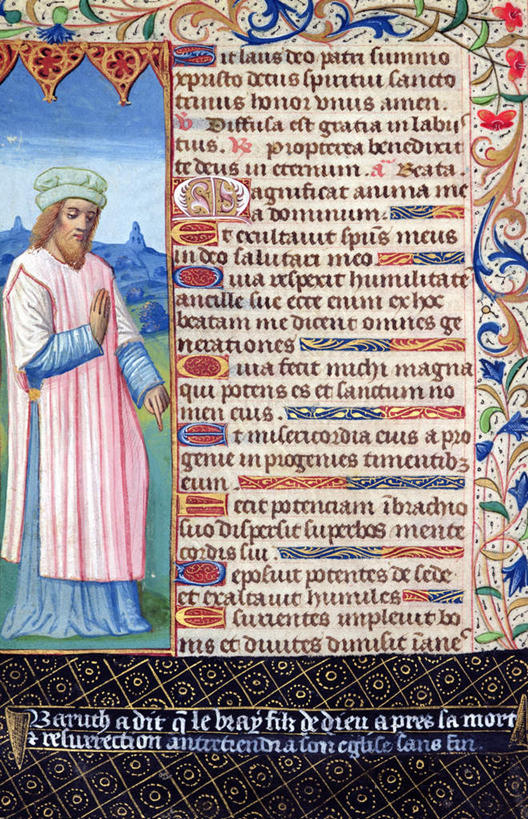 Sit laus deo patri summo
xpristo decus spiritui sancto
trinus honor vnus amen.
℣ Diffusa est gratia in labiis
tuis. ℟ Propterea benedixit
te deus in eternum. a Beata.
Magnificat anima me
a dominum.
Et exultauit spūs meus
in deo salutari meo
Quia respexit humilitatē
ancille sue ecce enim ex hoc
beatam me dicent omnes ge
nerationes
Quia fecit michi magna
qui potens es et sanctum no
men eius.
Et misericordia eius a pro
genie in progenies timentibꝫ
eum.
Fecit potenciam ī brachio
suo dispersit superbos mente
cordis sui.
Deposuit potentes de sede
et exaltauit humiles
Esurientes impleuit bo
nis et diuites dimisit īane
Baruth a dit q̄ le vray filz de dieu a pres sa mort
⁊ resurrection antretiendra son eglise sans fin.